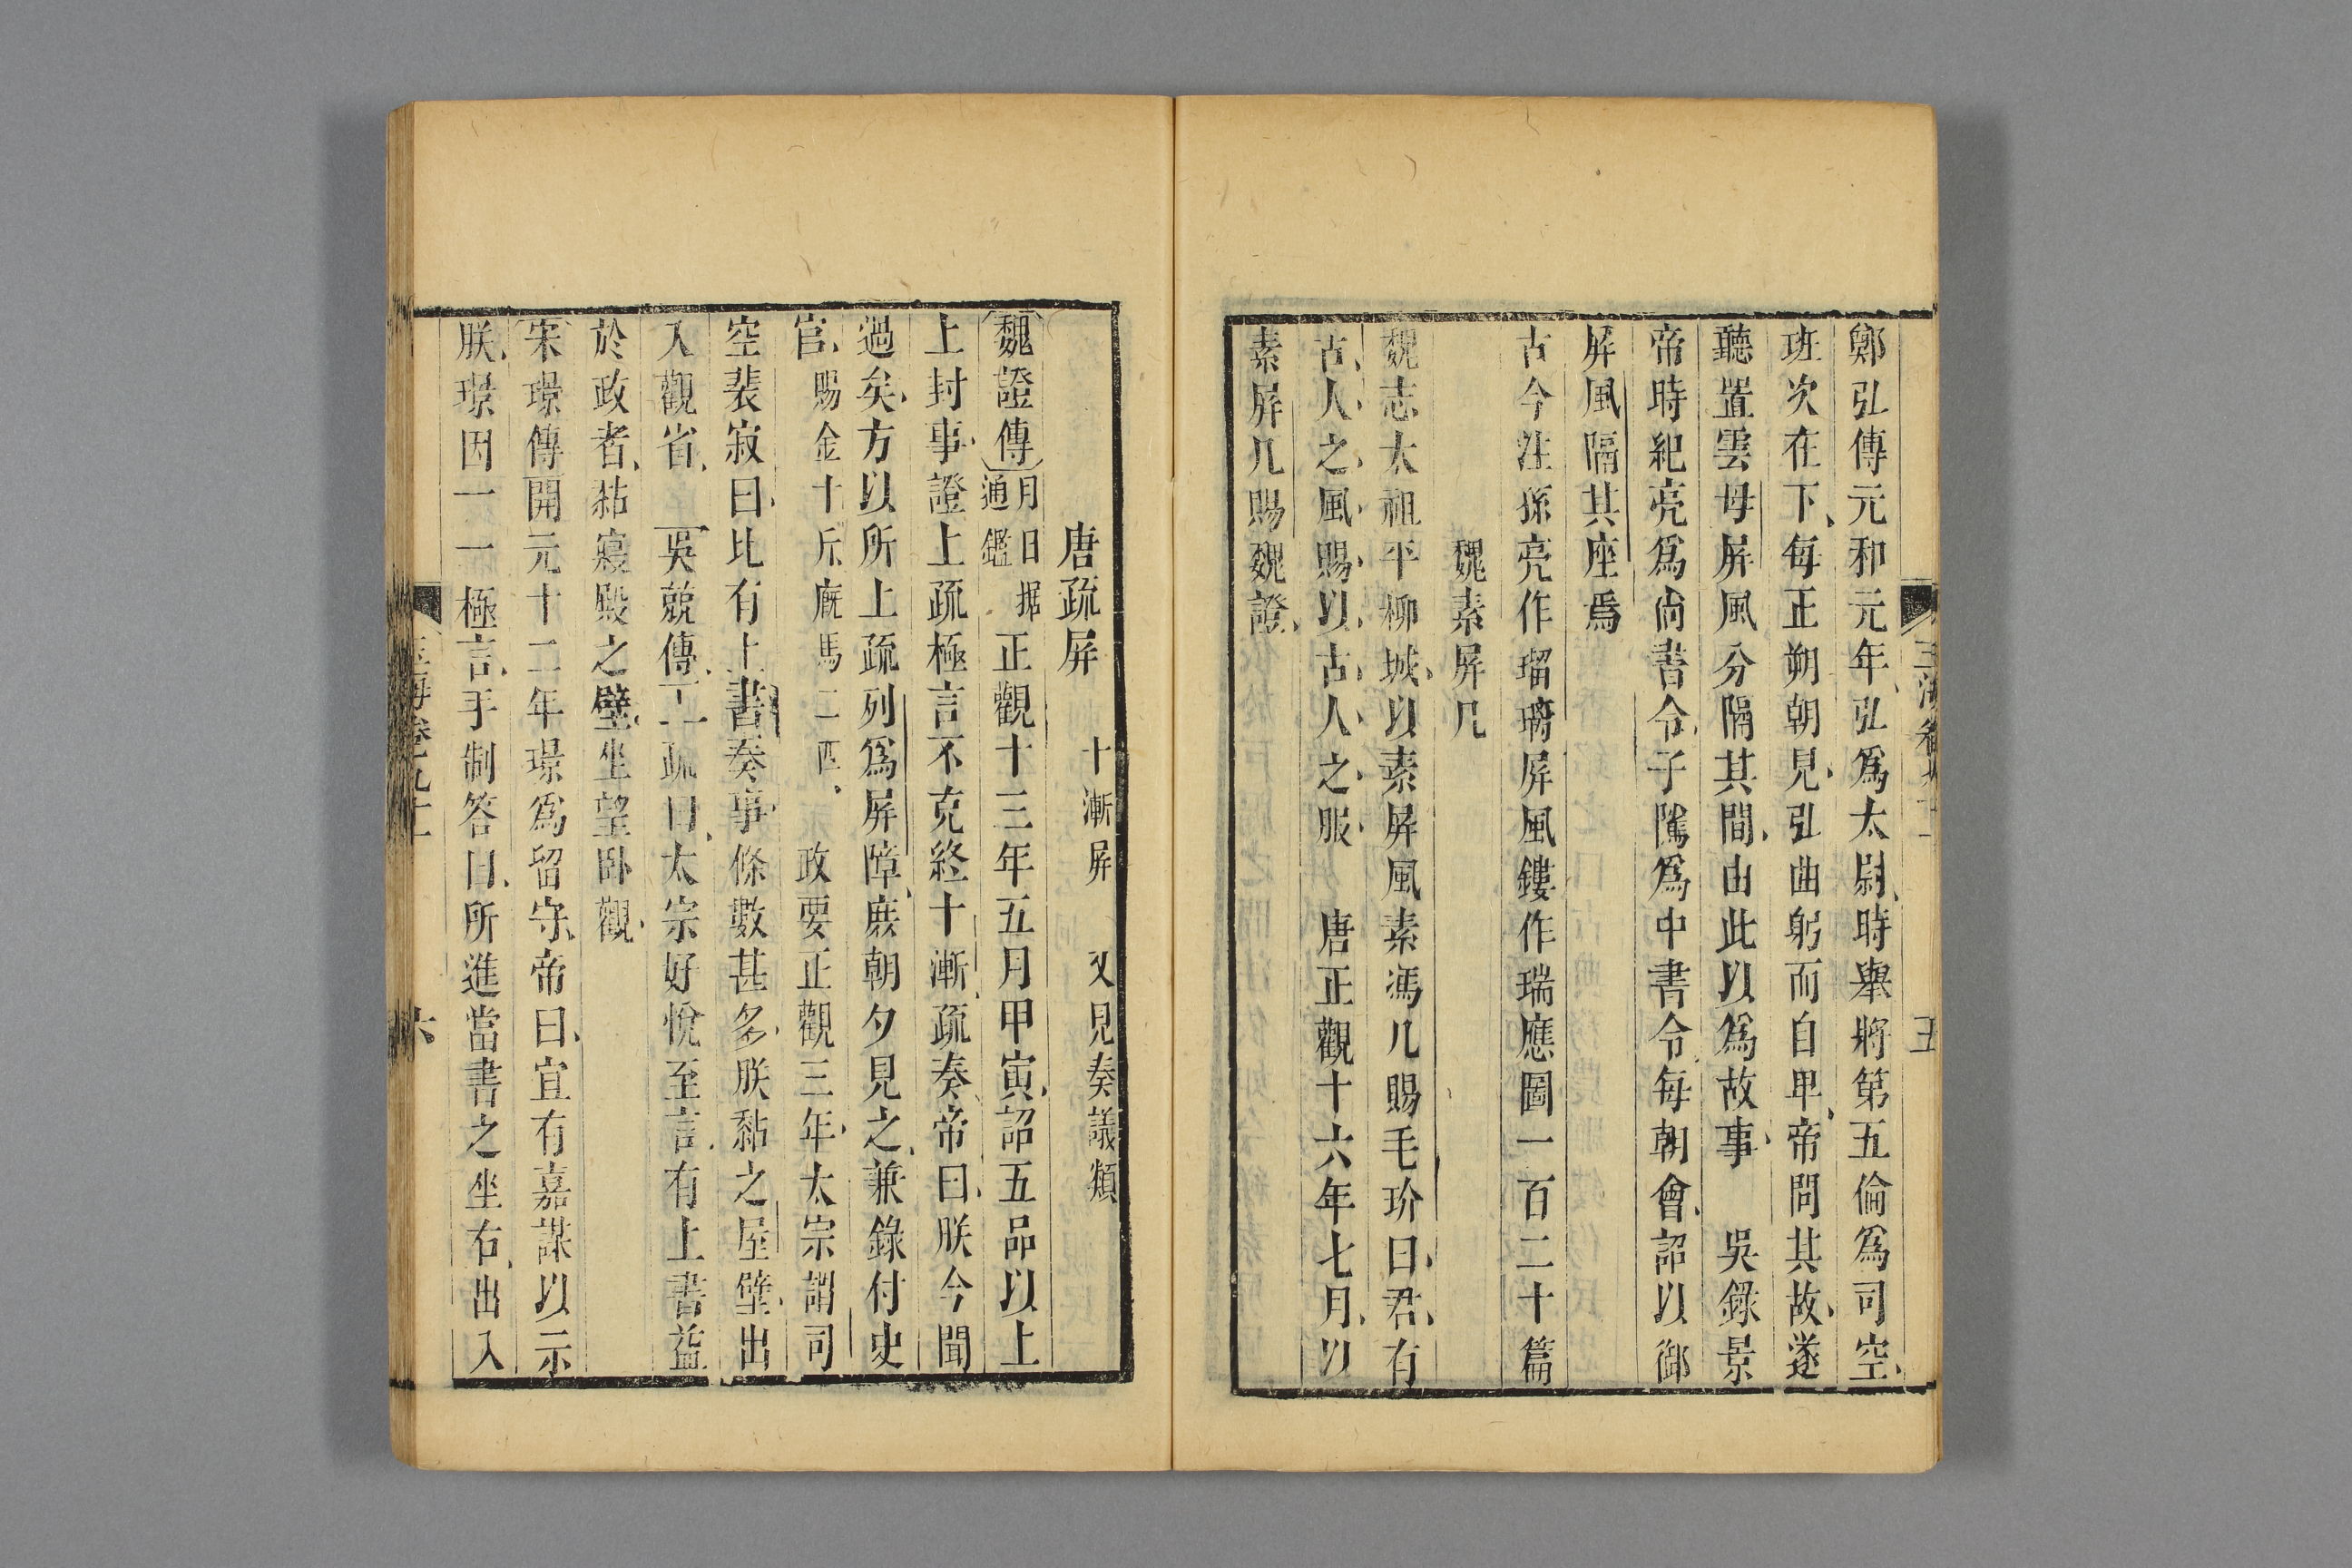 鄭弘傳元和元年弘爲太尉時舉將第五倫爲司空
班次在下每正朔朝見弘曲躬而自卑帝問其故遂
聽置雲母屏風分隔其間由此以爲故事 吳錄景
帝時紀亮爲尚書令子隲爲中書令每朝會詔以御
屏風隔其座焉
古今注孫亮作瑠璃屏風鏤作瑞應圖一百二十篇
魏素屏几
魏志太祖平柳城以素屏風素馮几賜毛玠曰君有
古人之風賜以古人之服 唐正觀十六年七月以
素屏几賜魏證
唐疏屏 十漸屏 又見奏議類
魏證傳月日据通鑑正觀十三年五月甲寅詔五品以上
上封事證上疏極言不克終十漸疏奏帝曰朕今聞
過矣方以所上疏列爲屏障庻朝夕見之兼錄付史
官賜金十斤廐馬二匹 政要正觀三年太宗謂司
空裴寂曰比有上書奏事條數甚多朕黏之屋壁出
入觀省 吳兢傳上疏曰太宗好悅至言有上書益
於政者黏寢殿之壁坐望卧觀
宋璟傳開元十二年璟爲留守帝曰宜有嘉謀以示
朕璟因一一極言手制答曰所進當書之坐右出入
玉海卷九十一
六